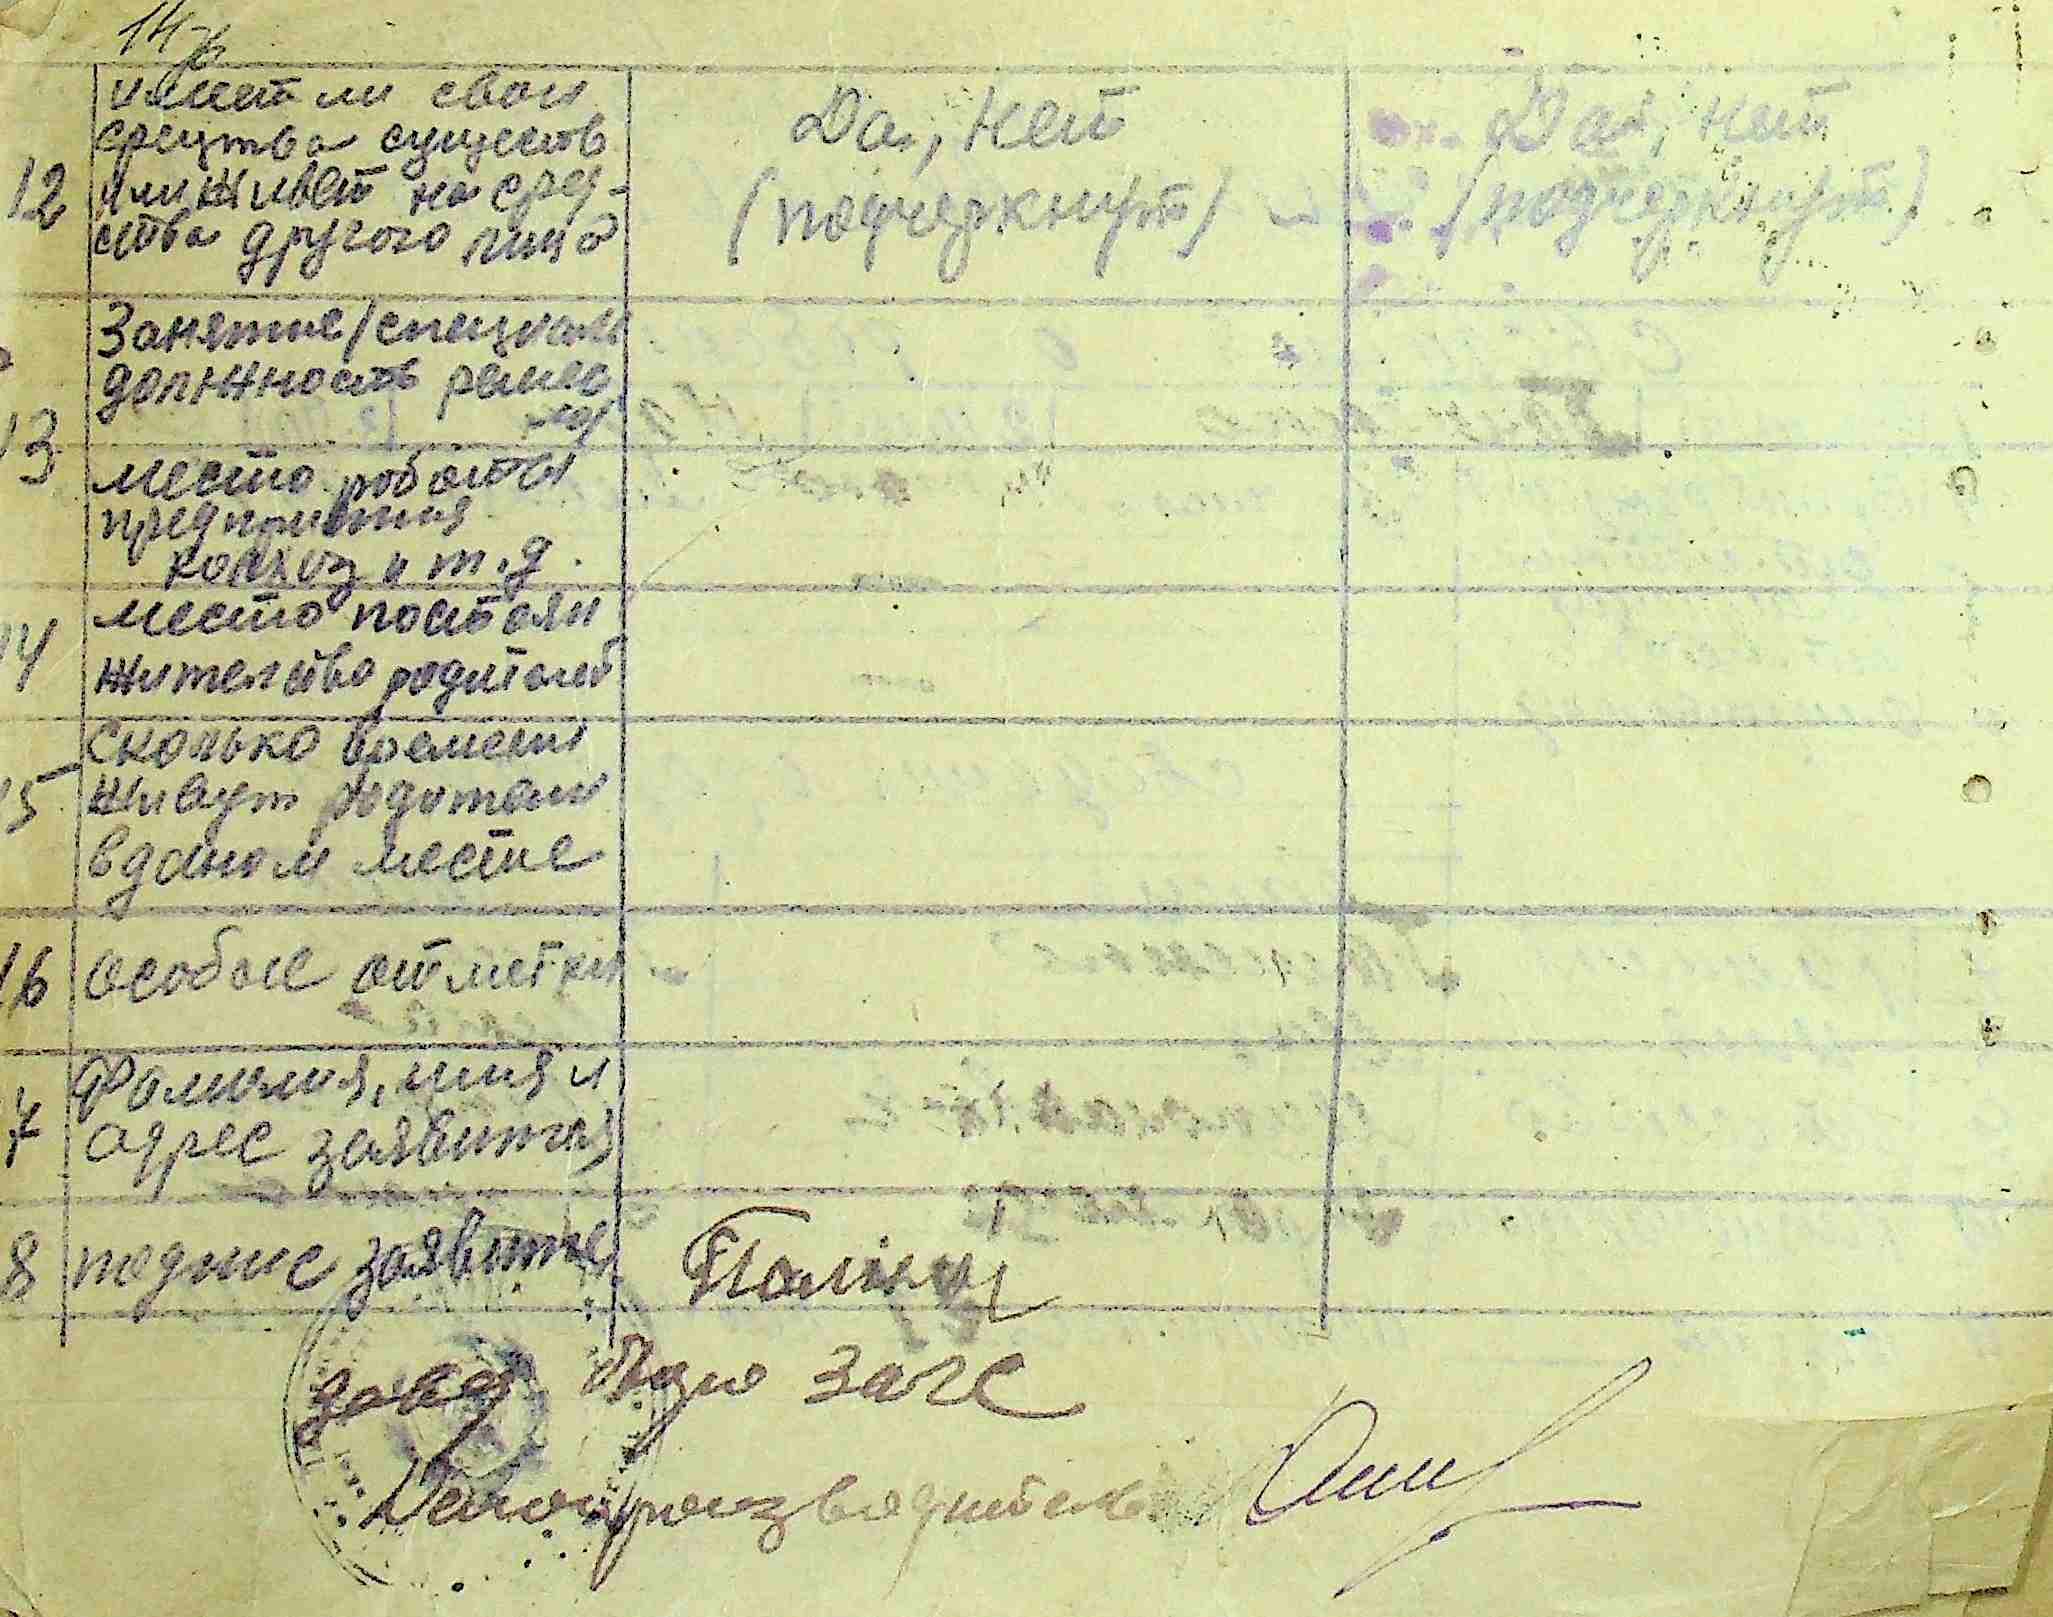 14
12
имеет ли свои
средства существ
или живет на сред-
ства другого лица
Да, нет
(подчеркнут)
Да, нет
(подчеркнут)
13
Занятие/специаль
должность ремес
место работы
предприятия
колхоз и т.д.
14
место постоян
жителство родителей
15
Сколько времени
живут родители
в даном месте
16
особые отметки
7
Фамилия, имя и
адрес заявител
8
подпис заявите
Завед Бюро Загс
Делопроизводитель